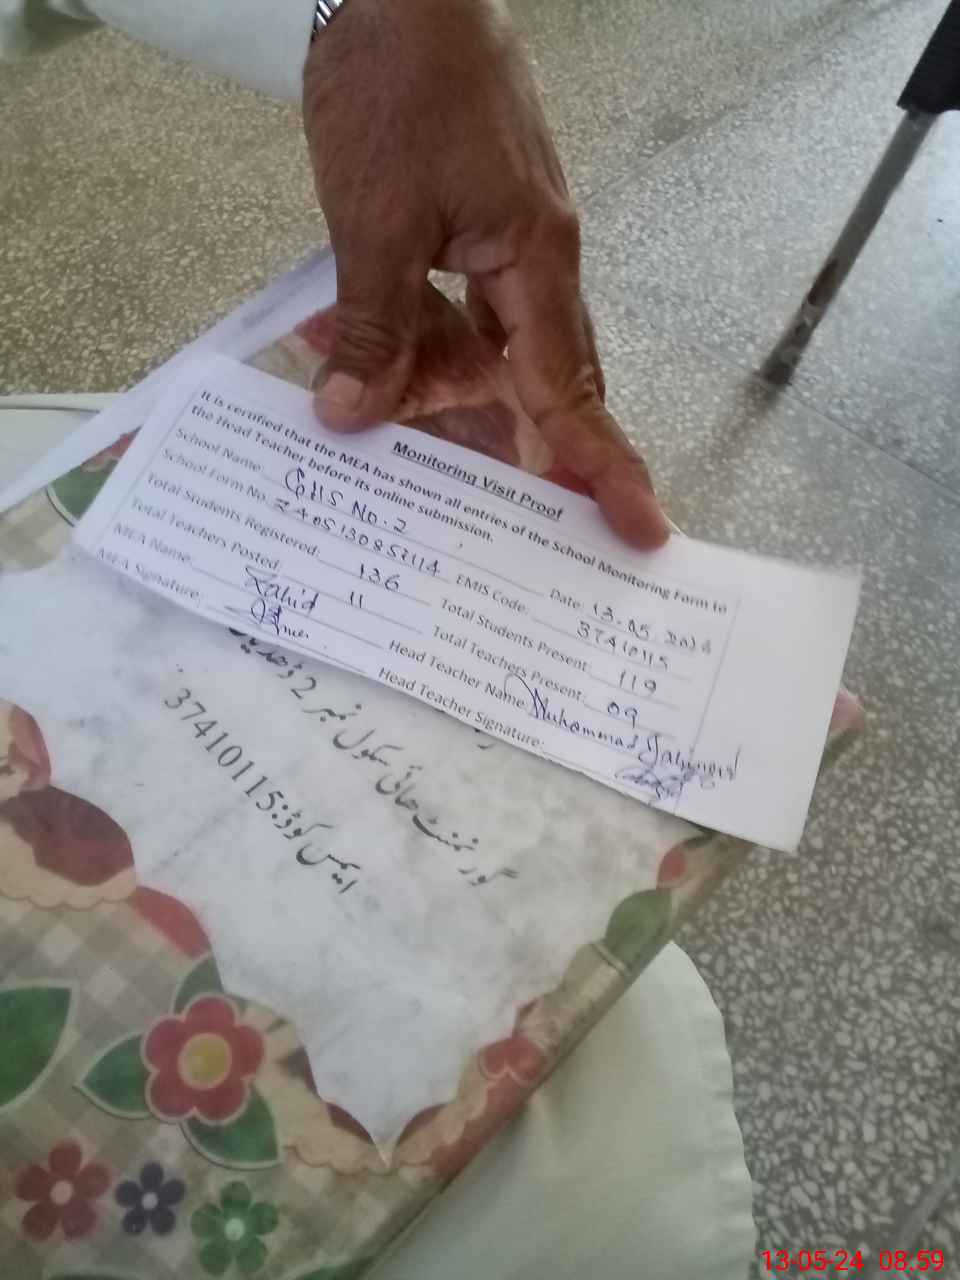 Monitoring Visit Proof
It is certified that the MEA has shown all entries of the School Monitoring Form to
the Head Teacher before its online submission.
School Name: GHS No. 2 Date: 13.05.2024
School Form No. 2405130852114 EMIS Code: 37410115
Total Students Registered: 136 Total Students Present: 119
Total Teachers Posted: 11 Total Teachers Present: 09
MEA Name: Zahid Head Teacher Name: Muhammad
MEA Signature: Head Teacher Signature:
گورنمنٹ ھائی سکول نمبر 2
ایمس کوڈ:37410115
13-05-24 08.59